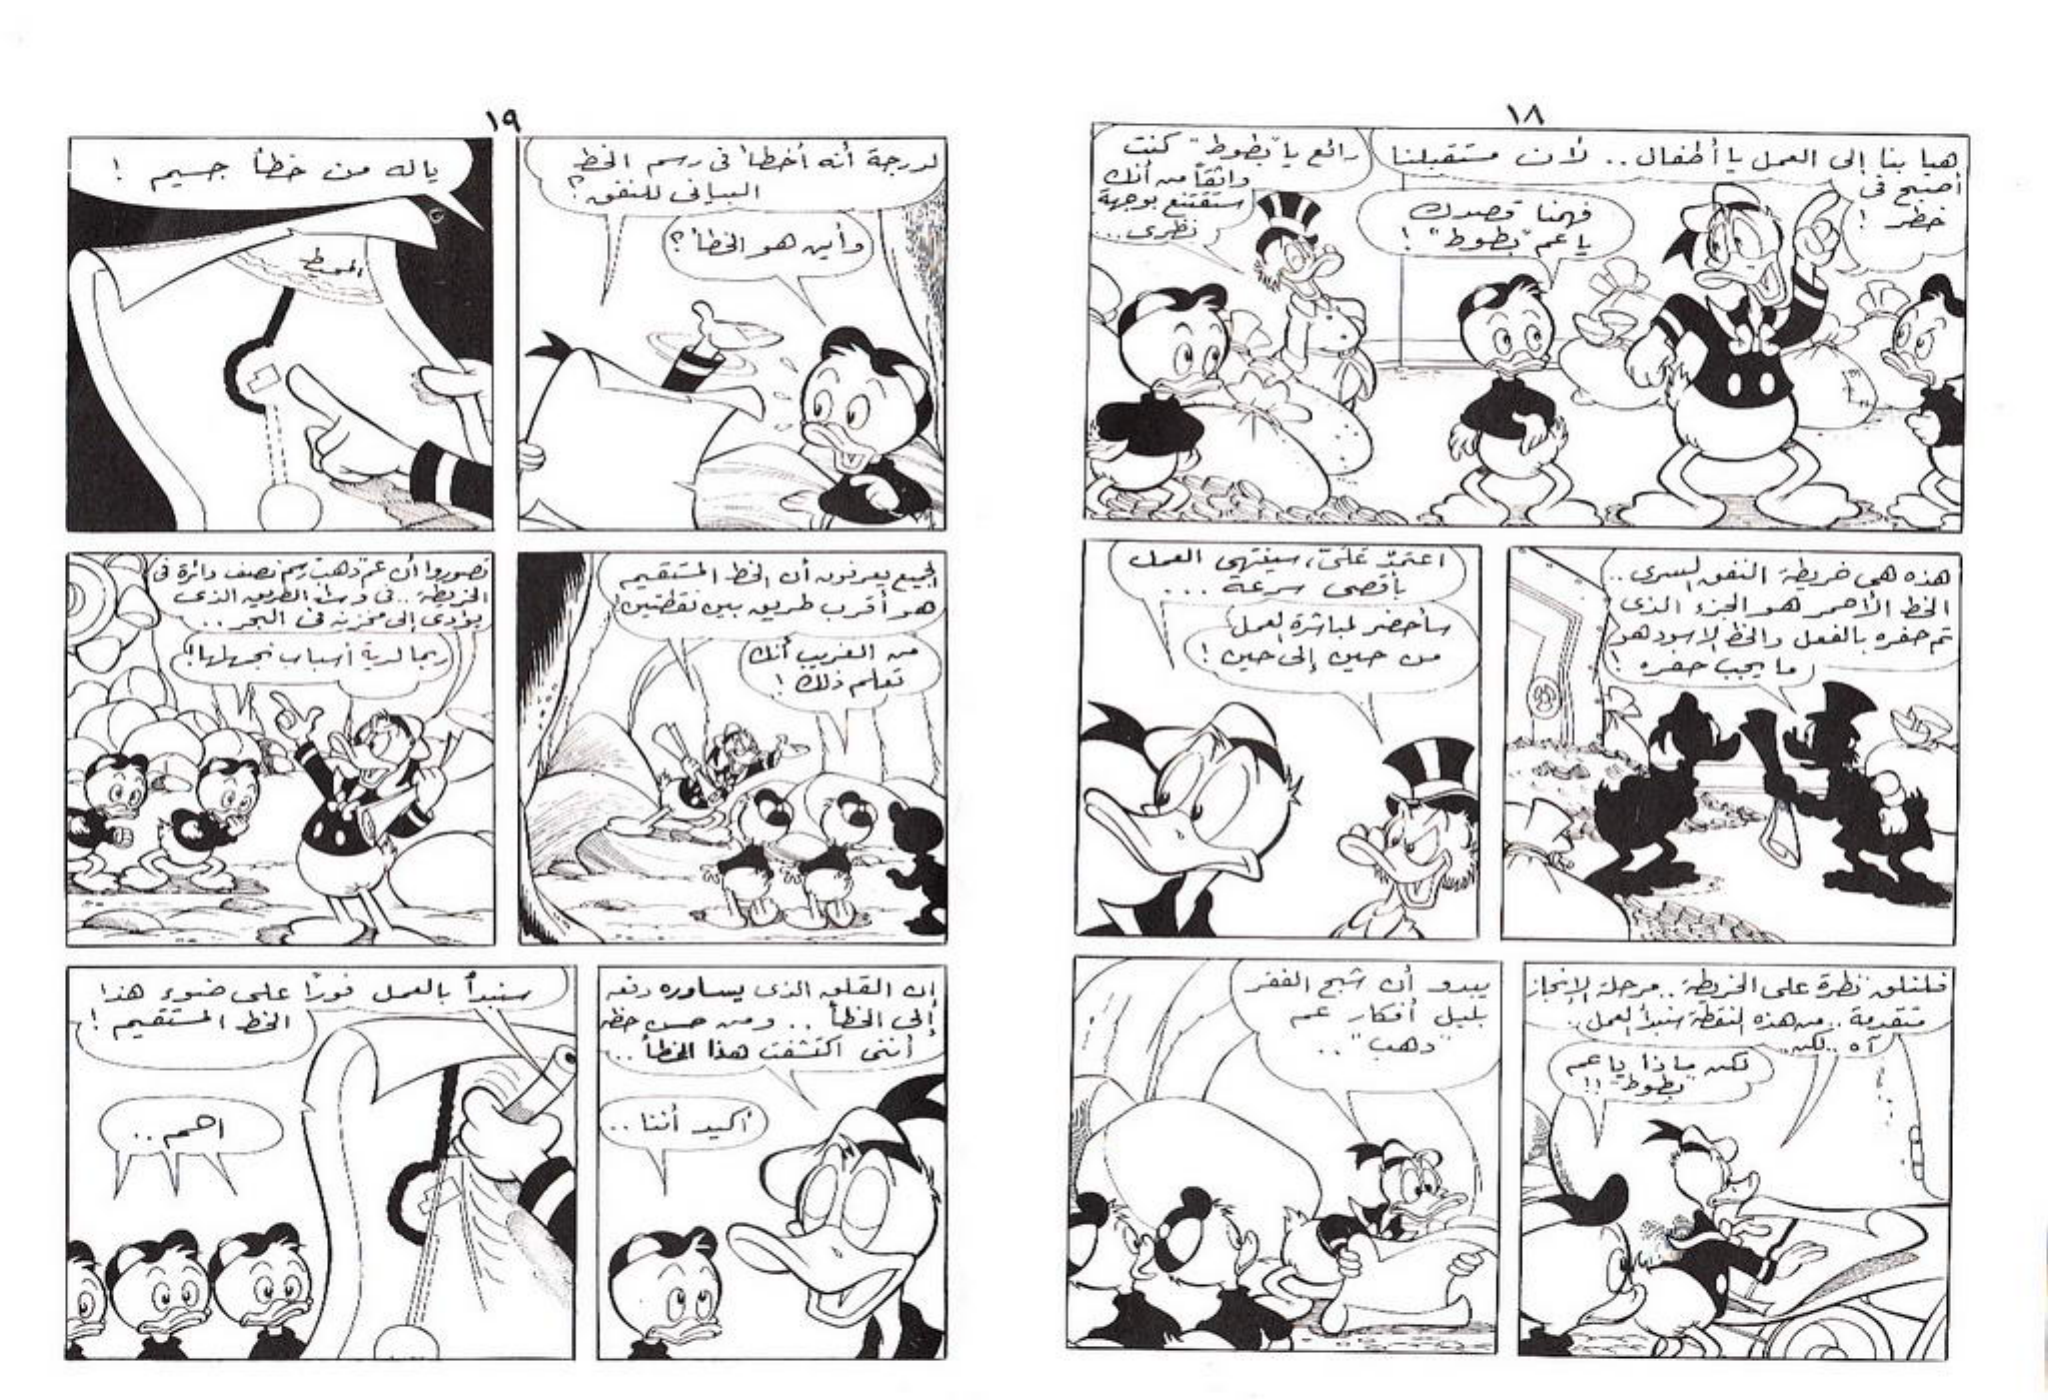 ١٨
هيا بنا إلى العمل يا أطفال .. لأن مستقبلنا
أصبح فى
خطر !
فهمنا قصدك
يا عم "بطوط" !
رائع يا "بطوط" كنت
واثقاً من أنك
ستقتنع بوجهة
نظرى ...
هذه هى خريطة النفق السرى ..
الخط الأحمر هو الجزء الذى
تم حفره بالفعل والخط الأسود هو
ما يجب حفره !
اعتمد علىّ، سينتهى العمل
بأقصى سرعة ...
سأحضر لمباشرة العمل
من حين إلى حين !
فلنلق نظرة على الخريطة .. مرحلة الإنجاز
متقدمة .. من هذه النقطة سنبدأ العمل ..
آه .. لكن ..
لكن ماذا يا عم
"بطوط" !!
يبدو أن شبح الفقر
بلبل أفكار عم
"دهب" ..
١٩
لدرجة أنه أخطأ فى رسم الخط
البيانى للنفق ؟
وأين هو الخطأ ؟
ياله من خطأ جسيم !
المحيط
الجميع يعرفون أن الخط المستقيم
هو أقرب طريق بين نقطتين !
من الغريب أنك
تعلم ذلك !
تصوروا أن عم دهب رسم نصف دائرة فى
الخريطة .. فى وسط الطريق الذى
يؤدى إلى مخزنه فى البحر ..
ربما لديه أسباب نجهلها !
إن القلق الذى يساوره دفعه
إلى الخطأ .. ومن حسن حظه
أننى اكتشفت هذا الخطأ ..
أكيد أننا ..
سنبدأ بالعمل فوراً على ضوء هذا
الخط المستقيم !
احم ..